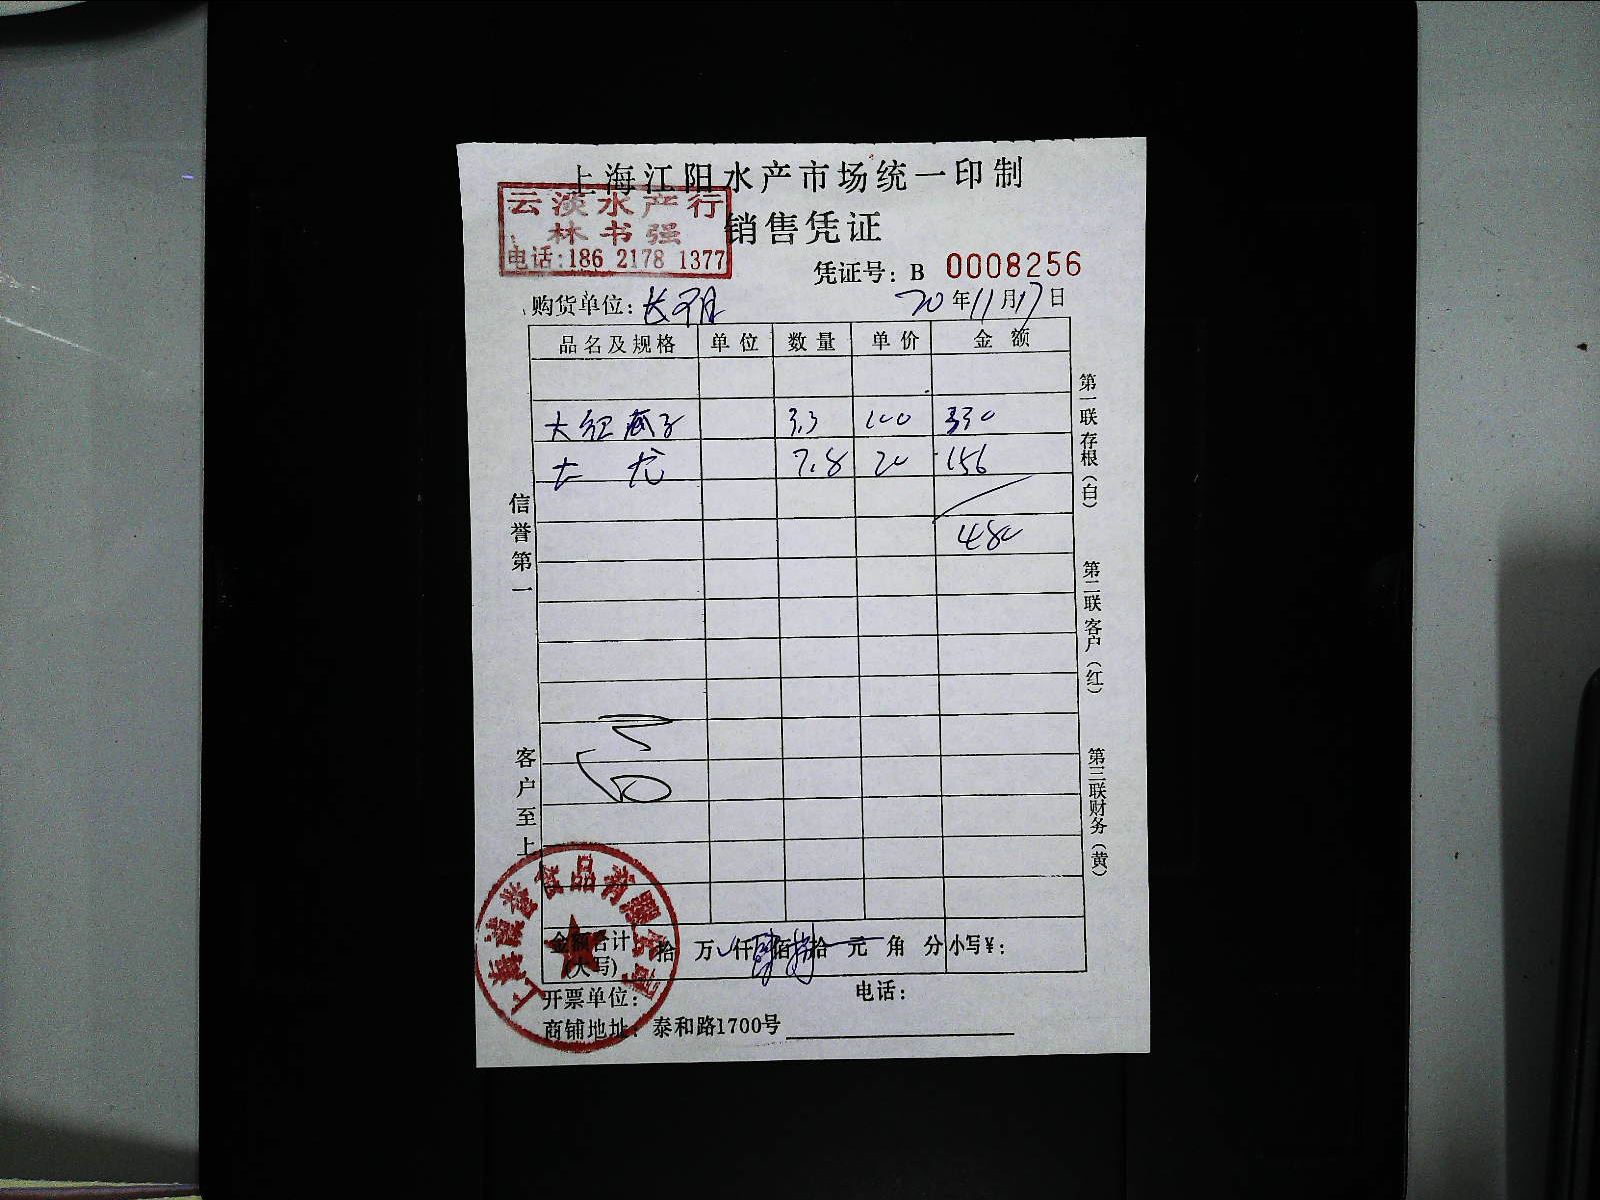 上海江阳水产市场统一印制
云淡水产行
林书强
电话:186 2178 1377
销售凭证
凭证号: B 0008256
购货单位:
20年11月17日
品名及规格 单位 数量 单价 金额
大红 子 3.3 100 330
大 龙 7.8 20 156
480
信誉第一
客户至上
第一联存根(白)
第二联客户(红)
第三联财务(黄)
上海 誉食品有限公司
金额合计(大写) 拾 万 仟肆佰捌拾 元 角 分 小写¥:
开票单位: 电话:
商铺地址: 泰和路1700号